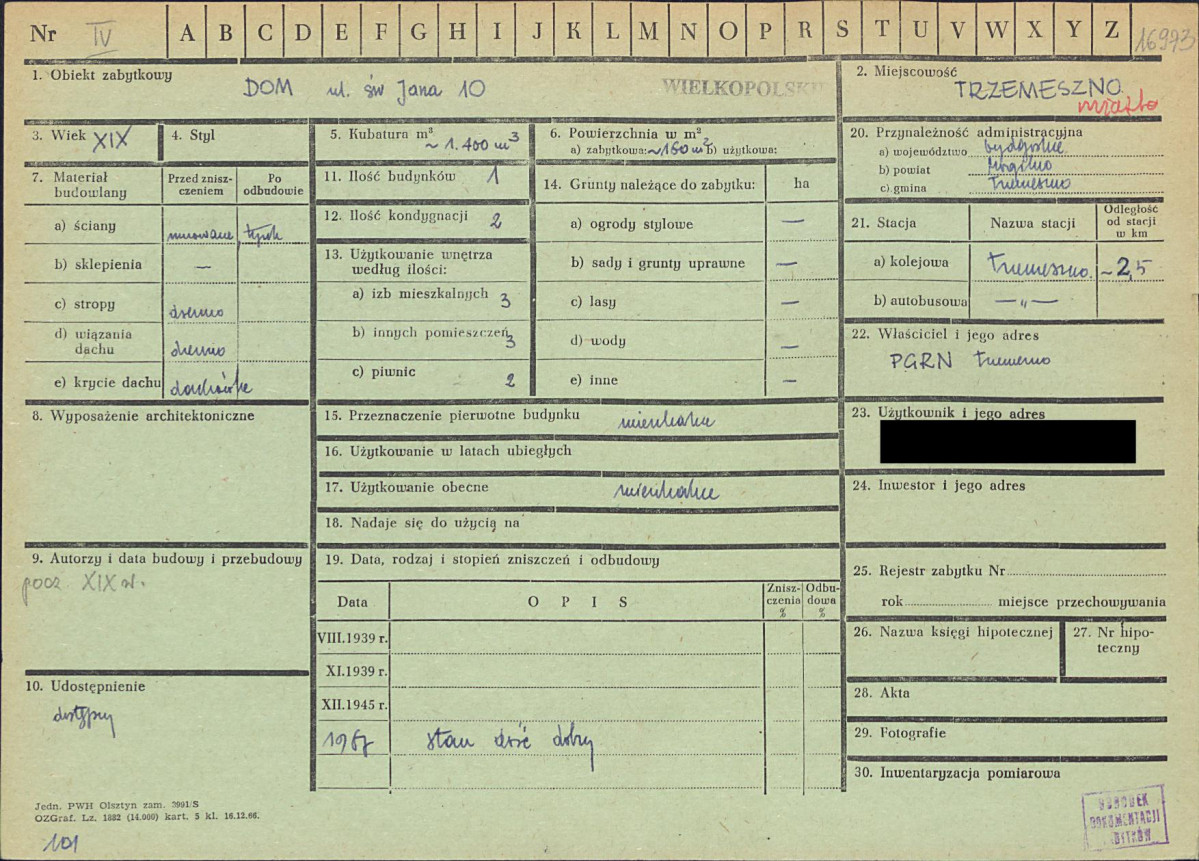 Nr IV A B C D E F G H I J K L M N O P R S T U V W X Y Z 16993
1. Obiekt zabytkowy
DOM ul. św Jana 10
WIELKOPOLSKIE
2. Miejscowość
TRZEMESZNO
miasto
3. Wiek XIX
4. Styl
5. Kubatura m³
~ 1.400 m³
6. Powierzchnia w m²
a) zabytkowa: ~160 m² b) użytkowa:
20. Przynależność administracyjna
a) województwo bydgoskie
b) powiat Mogilno
c) gmina Trzemeszno
7. Materiał budowlany
Przed zniszczeniem
Po odbudowie
a) ściany murowane, tynk
b) sklepienia —
c) stropy drewno
d) wiązania dachu drewno
e) krycie dachu dachówka
11. Ilość budynków 1
12. Ilość kondygnacji 2
13. Użytkowanie wnętrza według ilości:
a) izb mieszkalnych 3
b) innych pomieszczeń 3
c) piwnic 2
14. Grunty należące do zabytku: ha
a) ogrody stylowe —
b) sady i grunty uprawne —
c) lasy —
d) wody —
e) inne —
21. Stacja
Nazwa stacji
Odległość od stacji w km
a) kolejowa Trzemeszno. ~2,5
b) autobusowa —„—
22. Właściciel i jego adres
PGRN Trzemeszno
8. Wyposażenie architektoniczne
15. Przeznaczenie pierwotne budynku mieszkalne
16. Użytkowanie w latach ubiegłych
17. Użytkowanie obecne mieszkalne
18. Nadaje się do użycia na
23. Użytkownik i jego adres
24. Inwestor i jego adres
9. Autorzy i data budowy i przebudowy
pocz. XIX w.
19. Data, rodzaj i stopień zniszczeń i odbudowy
Data
O P I S
Zniszczenia %
Odbudowa %
VIII.1939 r.
XI.1939 r.
XII.1945 r.
1967 stan dość dobry
25. Rejestr zabytku Nr
rok miejsce przechowywania
26. Nazwa księgi hipotecznej
27. Nr hipoteczny
28. Akta
29. Fotografie
30. Inwentaryzacja pomiarowa
10. Udostępnienie
dostępny
Jedn. PWH Olsztyn zam. 3991/S
OZGraf. Lz. 1882 (14.000) kart. 5 kl. 16.12.66.
101
OŚRODEK
DOKUMENTACJI
ZABYTKÓW